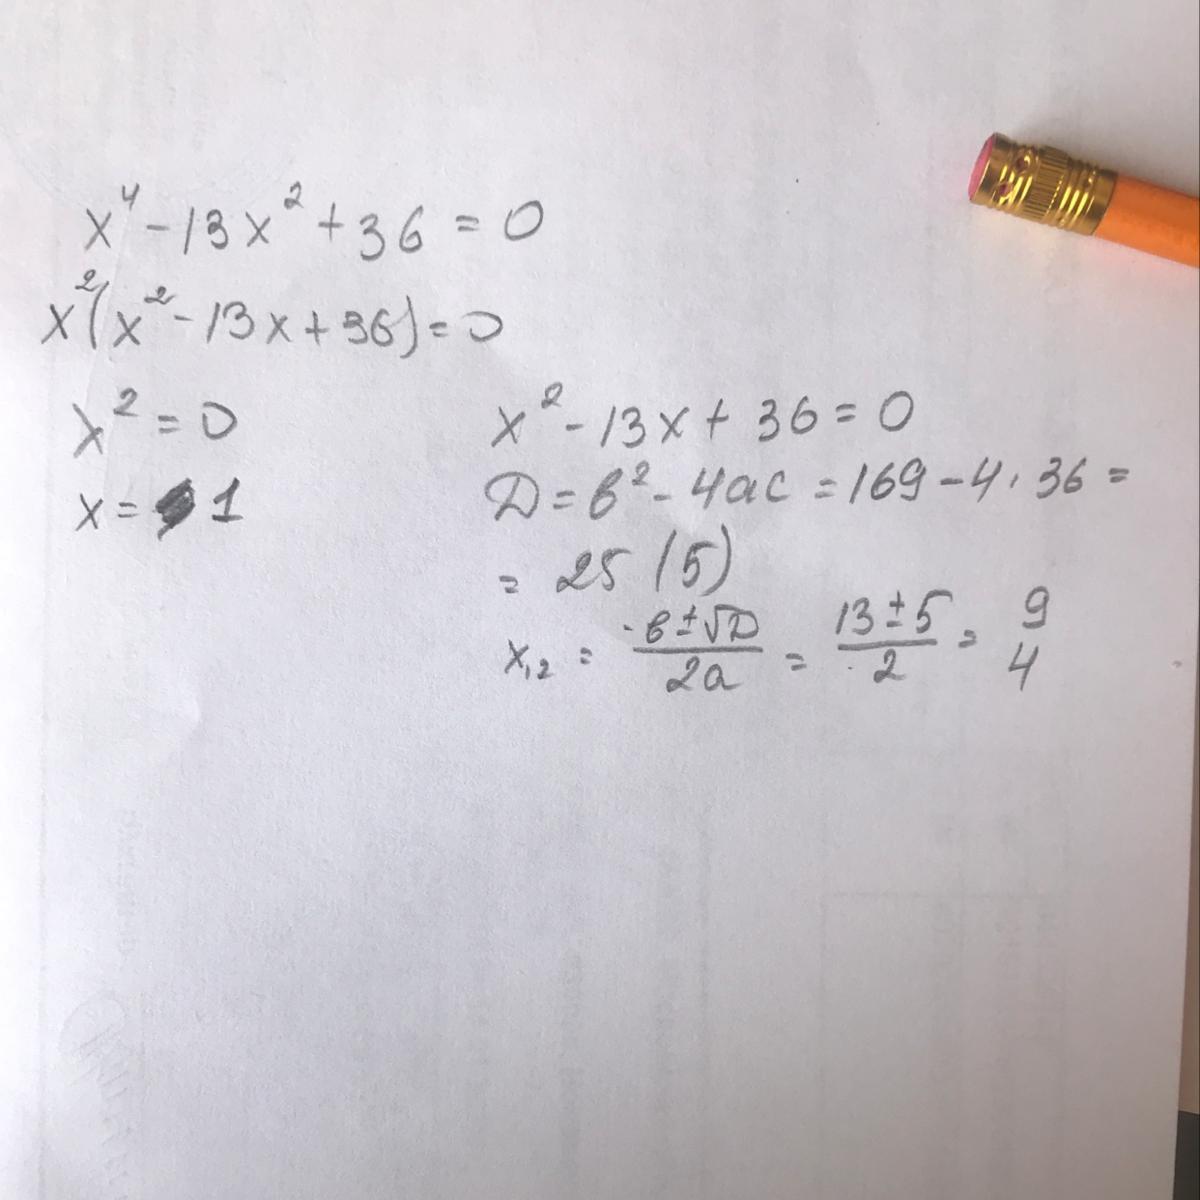 x⁴ - 13x² + 36 = 0
x²(x² - 13x + 36) = 0
x² = 0
x = 1
x² - 13x + 36 = 0
D = b² - 4ac = 169 - 4 · 36 =
= 25 (5)
x₁,₂ = -b ± √D / 2a = 13 ± 5 / 2 = 9
4